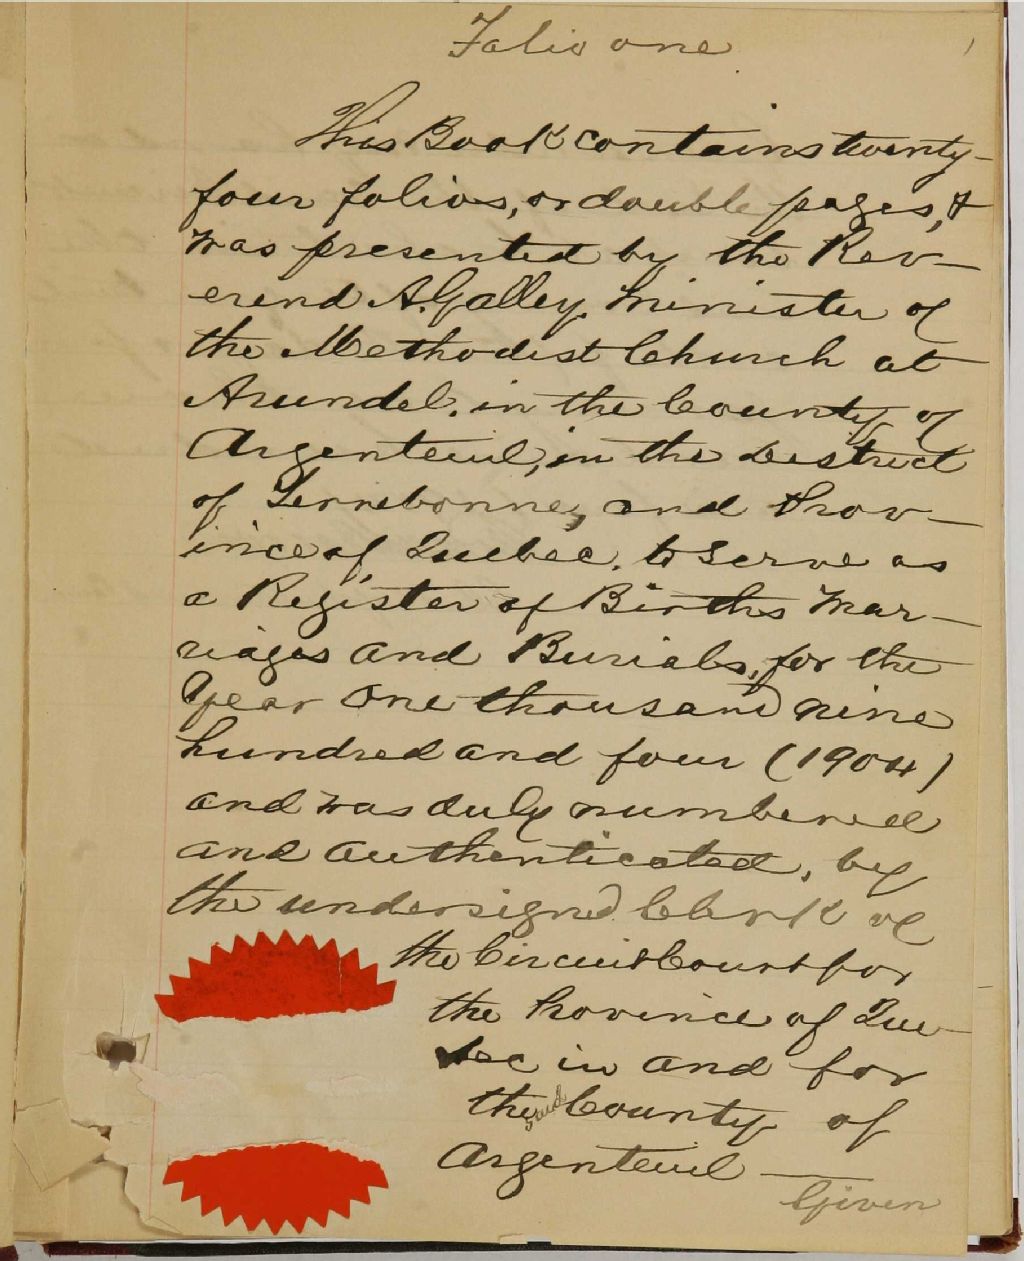 Folio one
1
This Book contains twenty-
four folios, or double pages, &
was presented by the Rev-
erend A. Galley, Minister of
the Methodist Church at
Arundel, in the County of
Argenteuil, in the District
of Terrebonne, and Prov-
ince of Quebec, to serve as
a Register of Births Mar-
riages and Burials, for the
Year One thousand nine
hundred and four (1904)
and was duly numbered
and authenticated, by
the undersigned Clerk of
the Circuit Court for
the Province of Que-
bec in and for
the said County of
Argenteuil —
Given